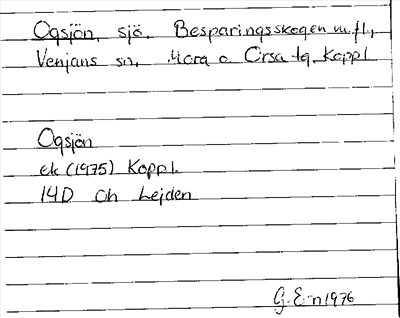 Ogsjön, sjö. Besparingsskogen m.fl.,
Venjans sn, Mora o. Orsa tg, Koppl
Ogsjön
ek (1975) Koppl.
14D Oh Lejden
G. E-n 1976